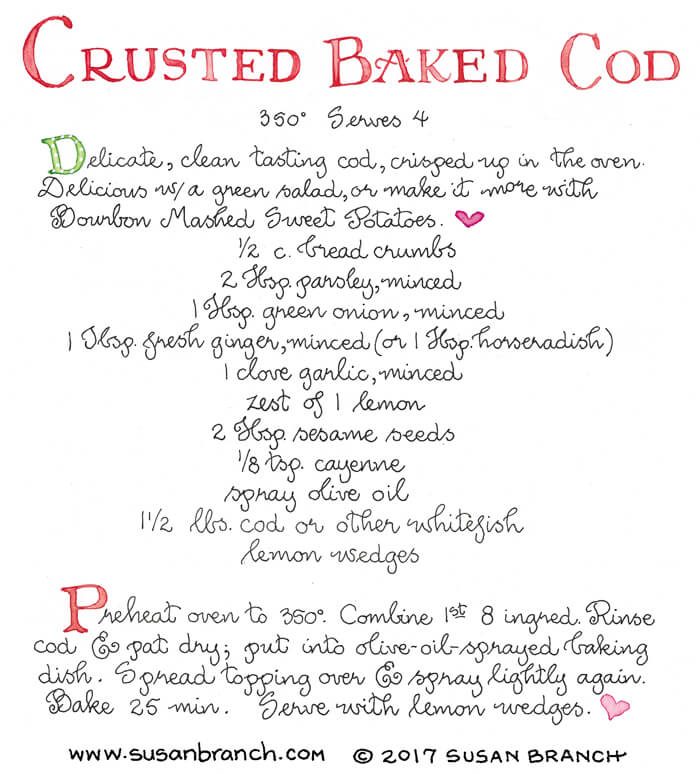 CRUSTED BAKED COD
350° Serves 4
Delicate, clean tasting cod, crisped up in the oven.
Delicious w/a green salad, or make it more with
Bourbon Mashed Sweet Potatoes.
1/2 c. bread crumbs
2 Tbsp. parsley, minced
1 Tbsp. green onion, minced
1 Tbsp. fresh ginger, minced (or 1 Tbsp. horseradish)
1 clove garlic, minced
zest of 1 lemon
2 Tbsp. sesame seeds
1/8 tsp. cayenne
spray olive oil
1 1/2 lbs. cod or other whitefish
lemon wedges
Preheat oven to 350°. Combine 1st 8 ingred. Rinse
cod & pat dry; put into olive-oil-sprayed baking
dish. Spread topping over & spray lightly again.
Bake 25 min. Serve with lemon wedges.
www.susanbranch.com © 2017 SUSAN BRANCH